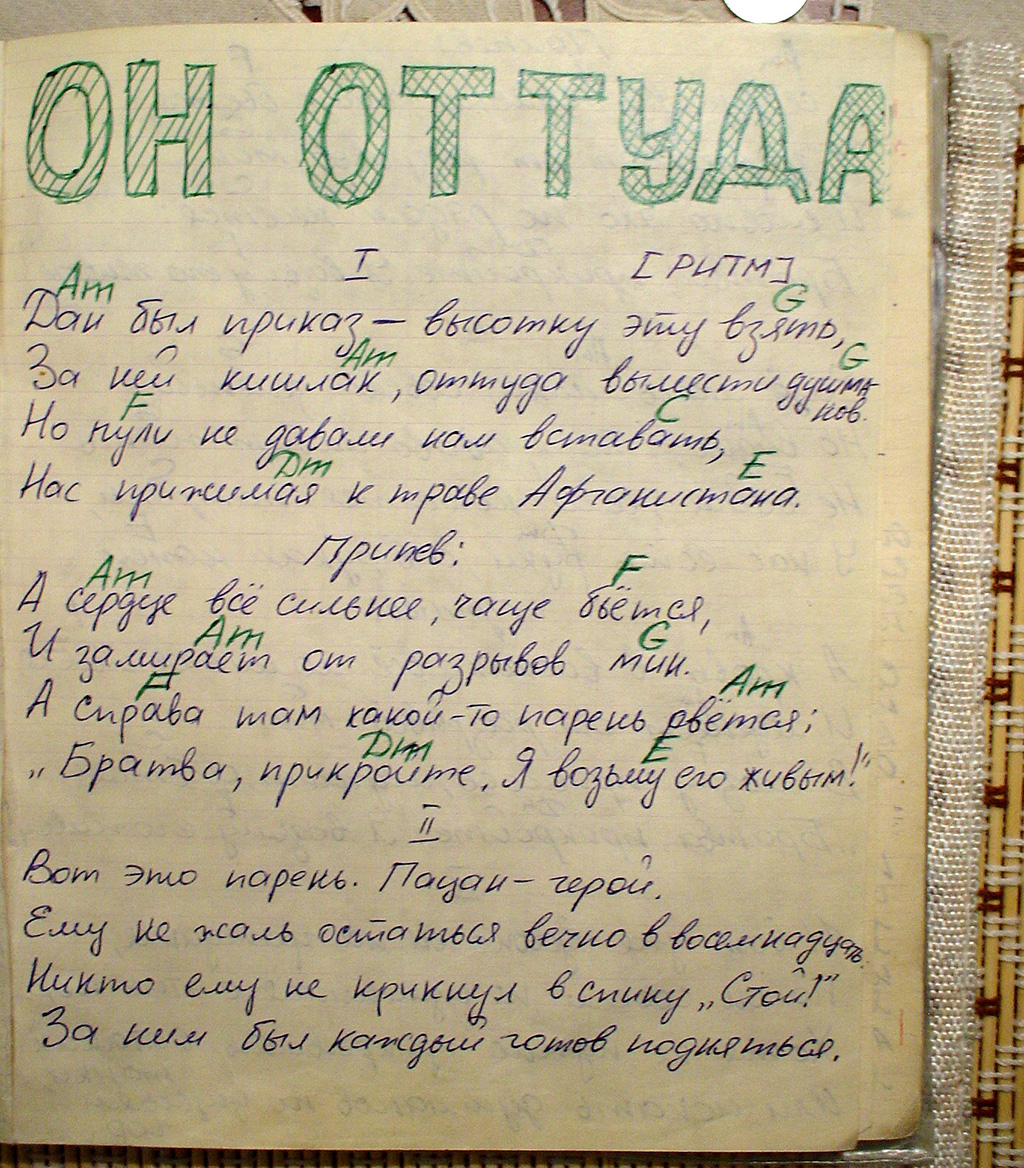 ОН ОТТУДА
I [РИТМ]
Am G
Дан был приказ – высотку эту взять,
Am G
За ней кишлак, оттуда вымести душма-
нов.
F C
Но пули не давали нам вставать,
Dm E
Нас прижимая к траве Афганистана.
Припев:
Am F
А сердце всё сильнее, чаще бьётся,
Am G
И замирает от разрывов мин.
F Am
А справа там какой-то парень рвётся:
Dm E
„Братва, прикройте. Я возьму его живым!“
II
Вот это парень. Пацан – герой.
Ему не жаль остаться вечно в восемнадцать.
Никто ему не крикнул в спину „Стой!“
За ним был каждый готов подняться.